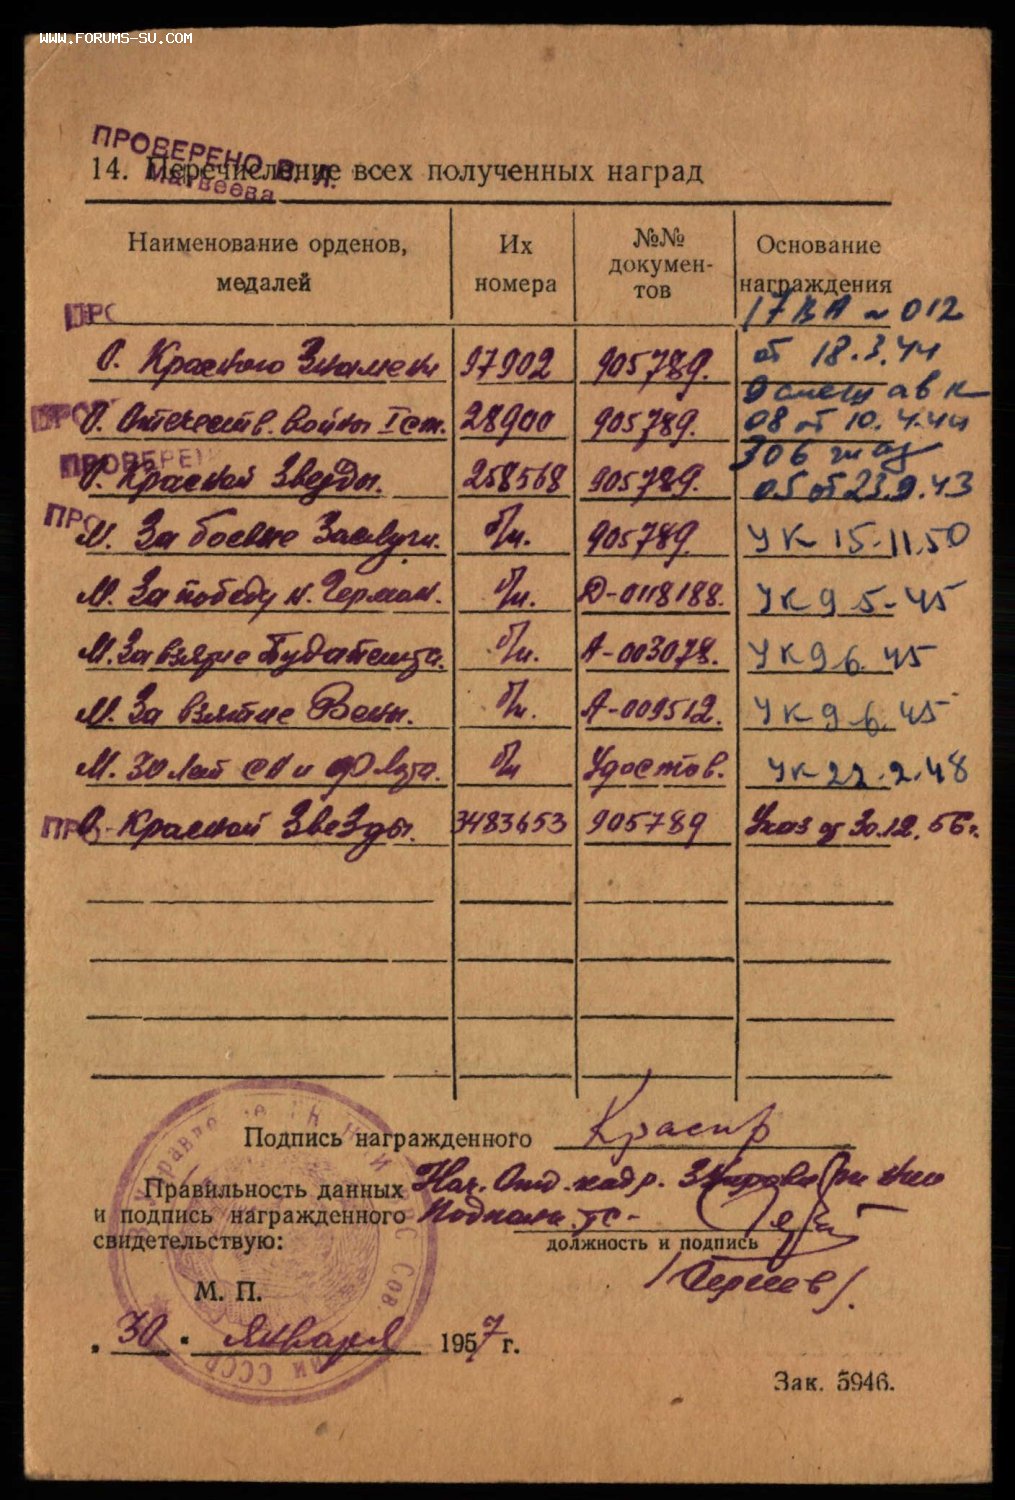 WWW.FORUMS-SU.COM
ПРОВЕРЕНО В. Л.
Матвеева
14. Перечисление всех полученных наград
Наименование орденов, медалей
Их номера
№№ документов
Основание награждения
ПРО
О. Красного Знамени 97902 905789. 17 ВА № 012 от 18.3.44
ПРО
О. Отечеств. войны I ст. 28900 905789. 08 от 10.4.44
ПРОВЕРЕН
О. Красной Звезды. 258568 905789. 306 05 от 23.9.43
ПРО
М. За боевые Заслуги. б/н. 905789. УК 15.11.50
М. За победу н. Герман. б/н. Д-0118188. УК 9 5-45
М. За взятие Будапешта. б/н. А-003078. УК 9 6. 45
М. За взятие Вены. б/н. А-009512. УК 9 6. 45
М. 30 лет СА и Флота. б/н Удостов. УК 22.2.48
ПРО
О. Красной Звезды. 3483653 905789 Указ от 30.12.56г.
Подпись награжденного
Правильность данных Нач. Отд. кадр.
и подпись награжденного Подполк.
свидетельствую:
должность и подпись
М. П.
„30" января 1957 г.
Зак. 5946.